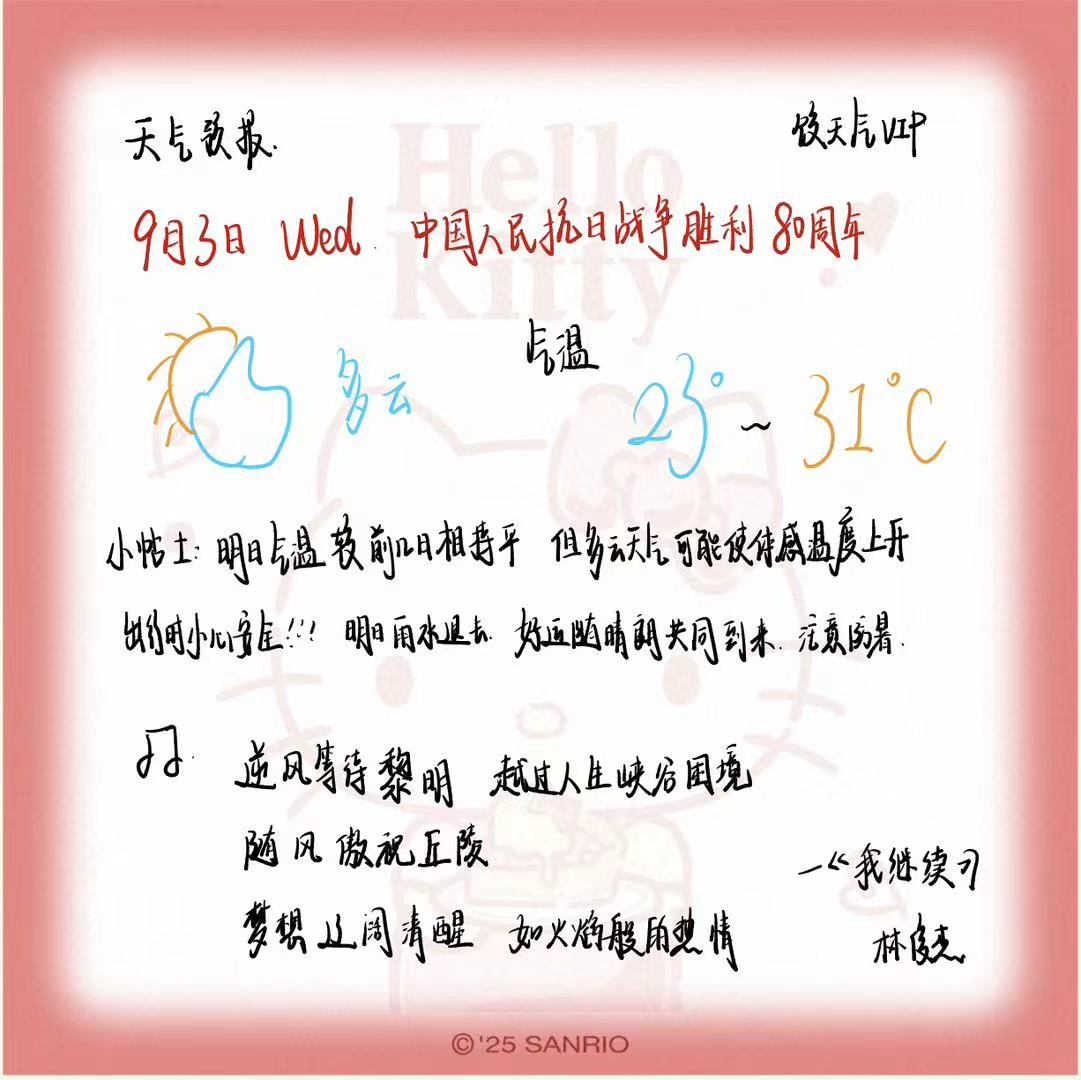 天气预报.
饺天气VIP
Hello
Kitty
9月3日 Wed. 中国人民抗日战争胜利80周年
气温
多云 23°~31°C
小帖士: 明日气温较前几日相持平 但多云天气可能使体感温度上升
出行时小心安全!!! 明日雨水退去. 好运随晴朗共同到来. 注意防暑.
逆风等待黎明 越过人生峡谷困境
随风傲视丘陵
—《我继续》
梦想辽阔清醒 如火焰般的热情
林俊杰
©'25 SANRIO